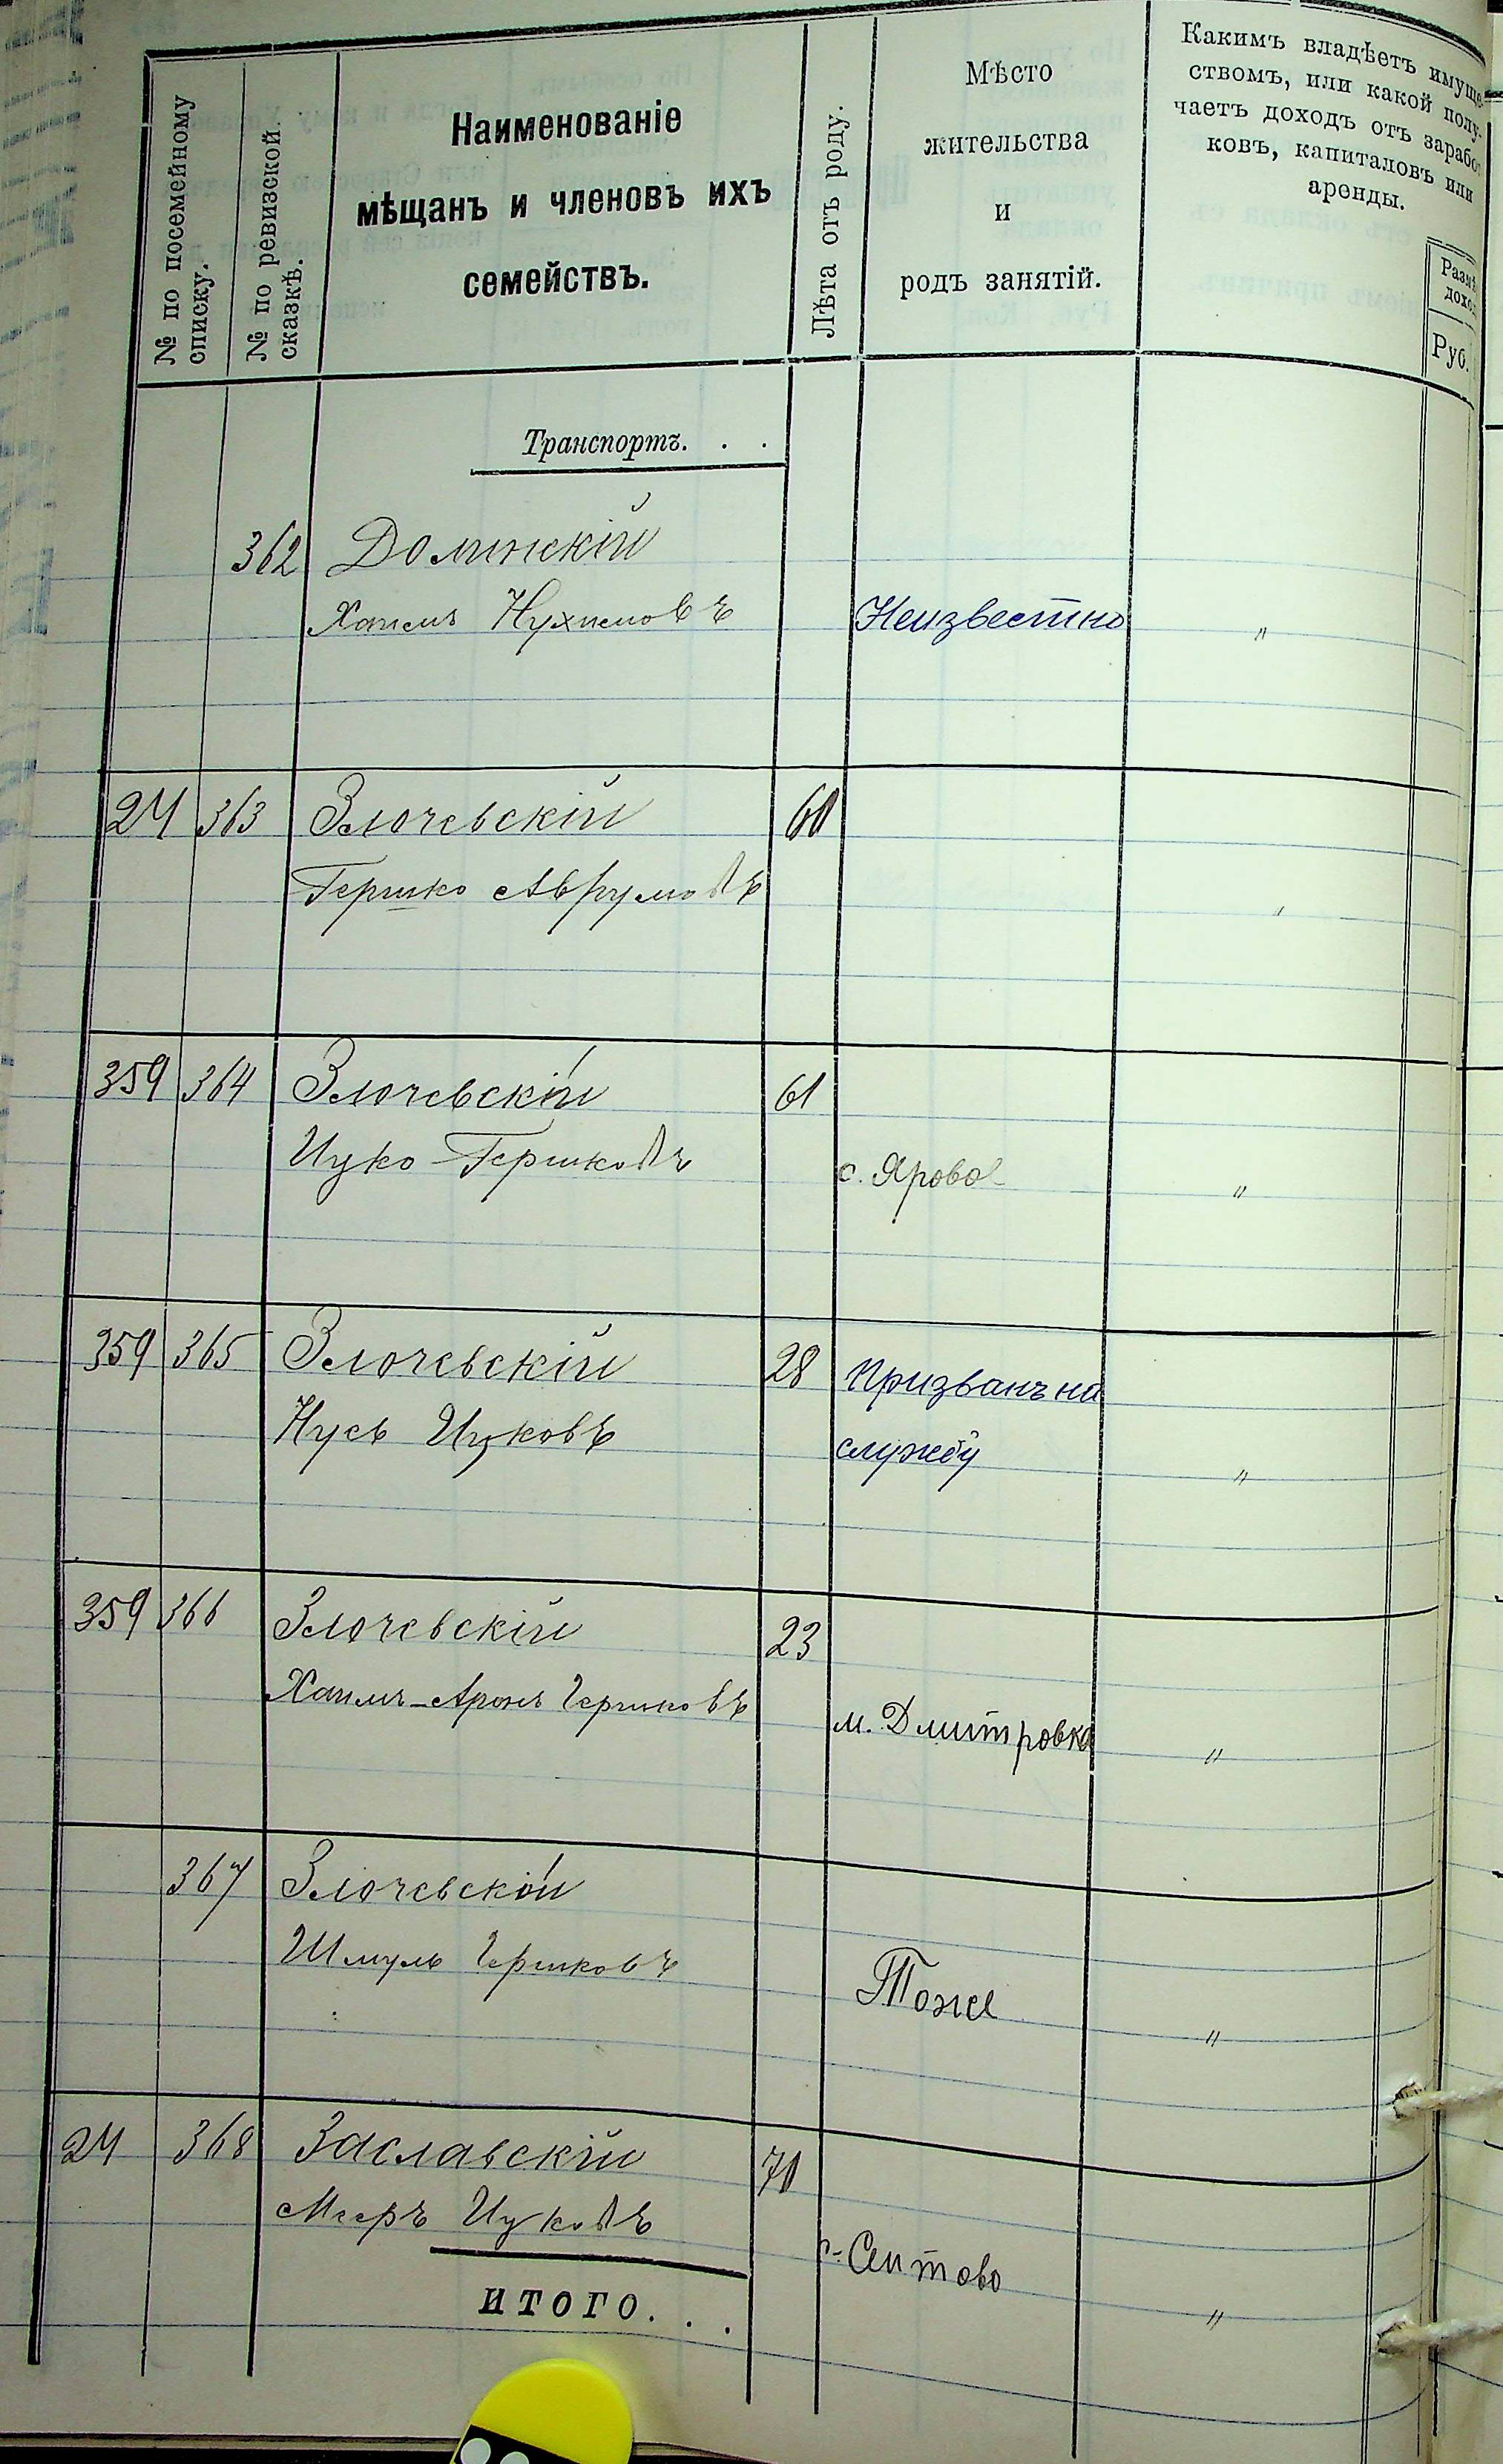 № по посемейному
списку.
№ по ревизской
сказкѣ.
Наименованіе
мѣщанъ и членовъ ихъ
семействъ.
Лѣта отъ роду.
Мѣсто
жительства
и
родъ занятій.
Какимъ владѣетъ имуще-
ствомъ, или какой полу-
чаетъ доходъ отъ заработ
ковъ, капиталовъ или
аренды.
Размѣ
доход
Руб.
Транспортъ. . .
362 Долинскій
Хаимъ Нухимовъ Неизвестно "
24 363 Злочевскій 60
Гершко Аврумовъ "
359 364 Злочевскій 61
Ицко Гершковъ с. Ярово "
359 365 Злочевскій 28 Призванъ на
Нусь Ицковъ службу "
359 366 Злочевскій 23
Хаимъ-Аронъ Гершковъ м. Дмитровка "
367 Злочевскій
Шмуль Гершковъ Тоже "
24 368 Заславскій 70
Мееръ Ицковъ "
ИТОГО. . .